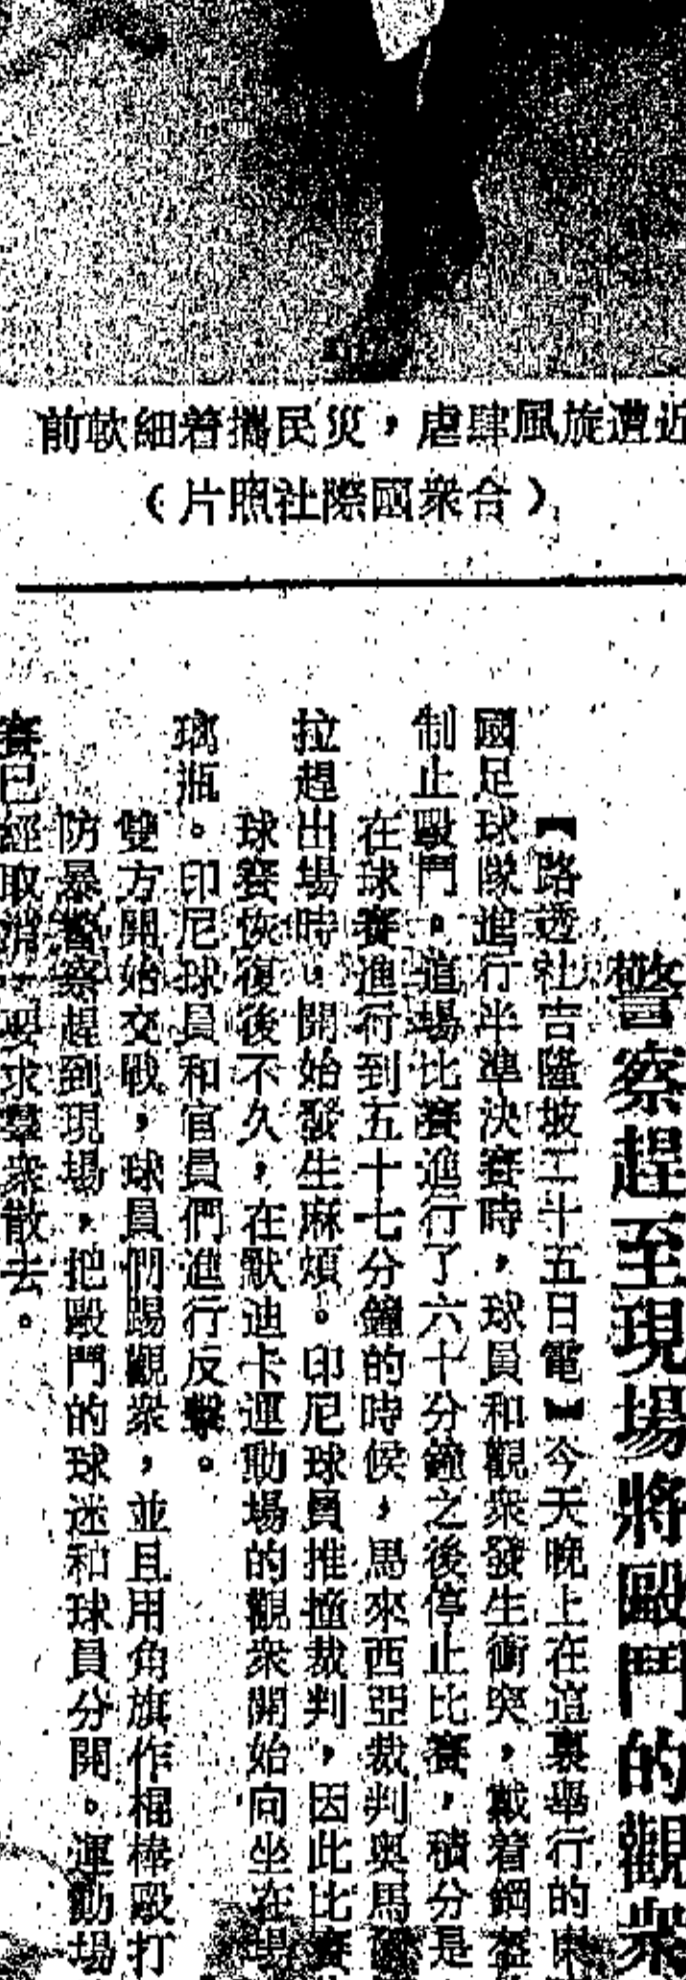 近遭旋風肆虐，災民攜着細軟前
（合衆國際社照片）
警察趕至現場將毆鬥的觀衆
【路透社吉隆坡二十五日電】今天晚上在這裏舉行的
國足球隊進行半準決賽時，球員和觀衆發生衝突，戴着鋼盔
制止毆鬥。這場比賽進行了六十分鐘之後停止比賽，積分是
在球賽進行到五十七分鐘的時候，馬來西亞裁判奧馬
拉趕出場時，開始發生麻煩。印尼球員推撞裁判，因此比賽
球賽恢復後不久，在默迪卡運動場的觀衆開始向坐在
璃瓶。印尼球員和官員們進行反擊。
雙方開始交戰，球員們踢觀衆，並且用角旗作棍棒毆打
防暴警察趕到現場，把毆鬥的球迷和球員分開。運動場
賽已經取消，要求羣衆散去。